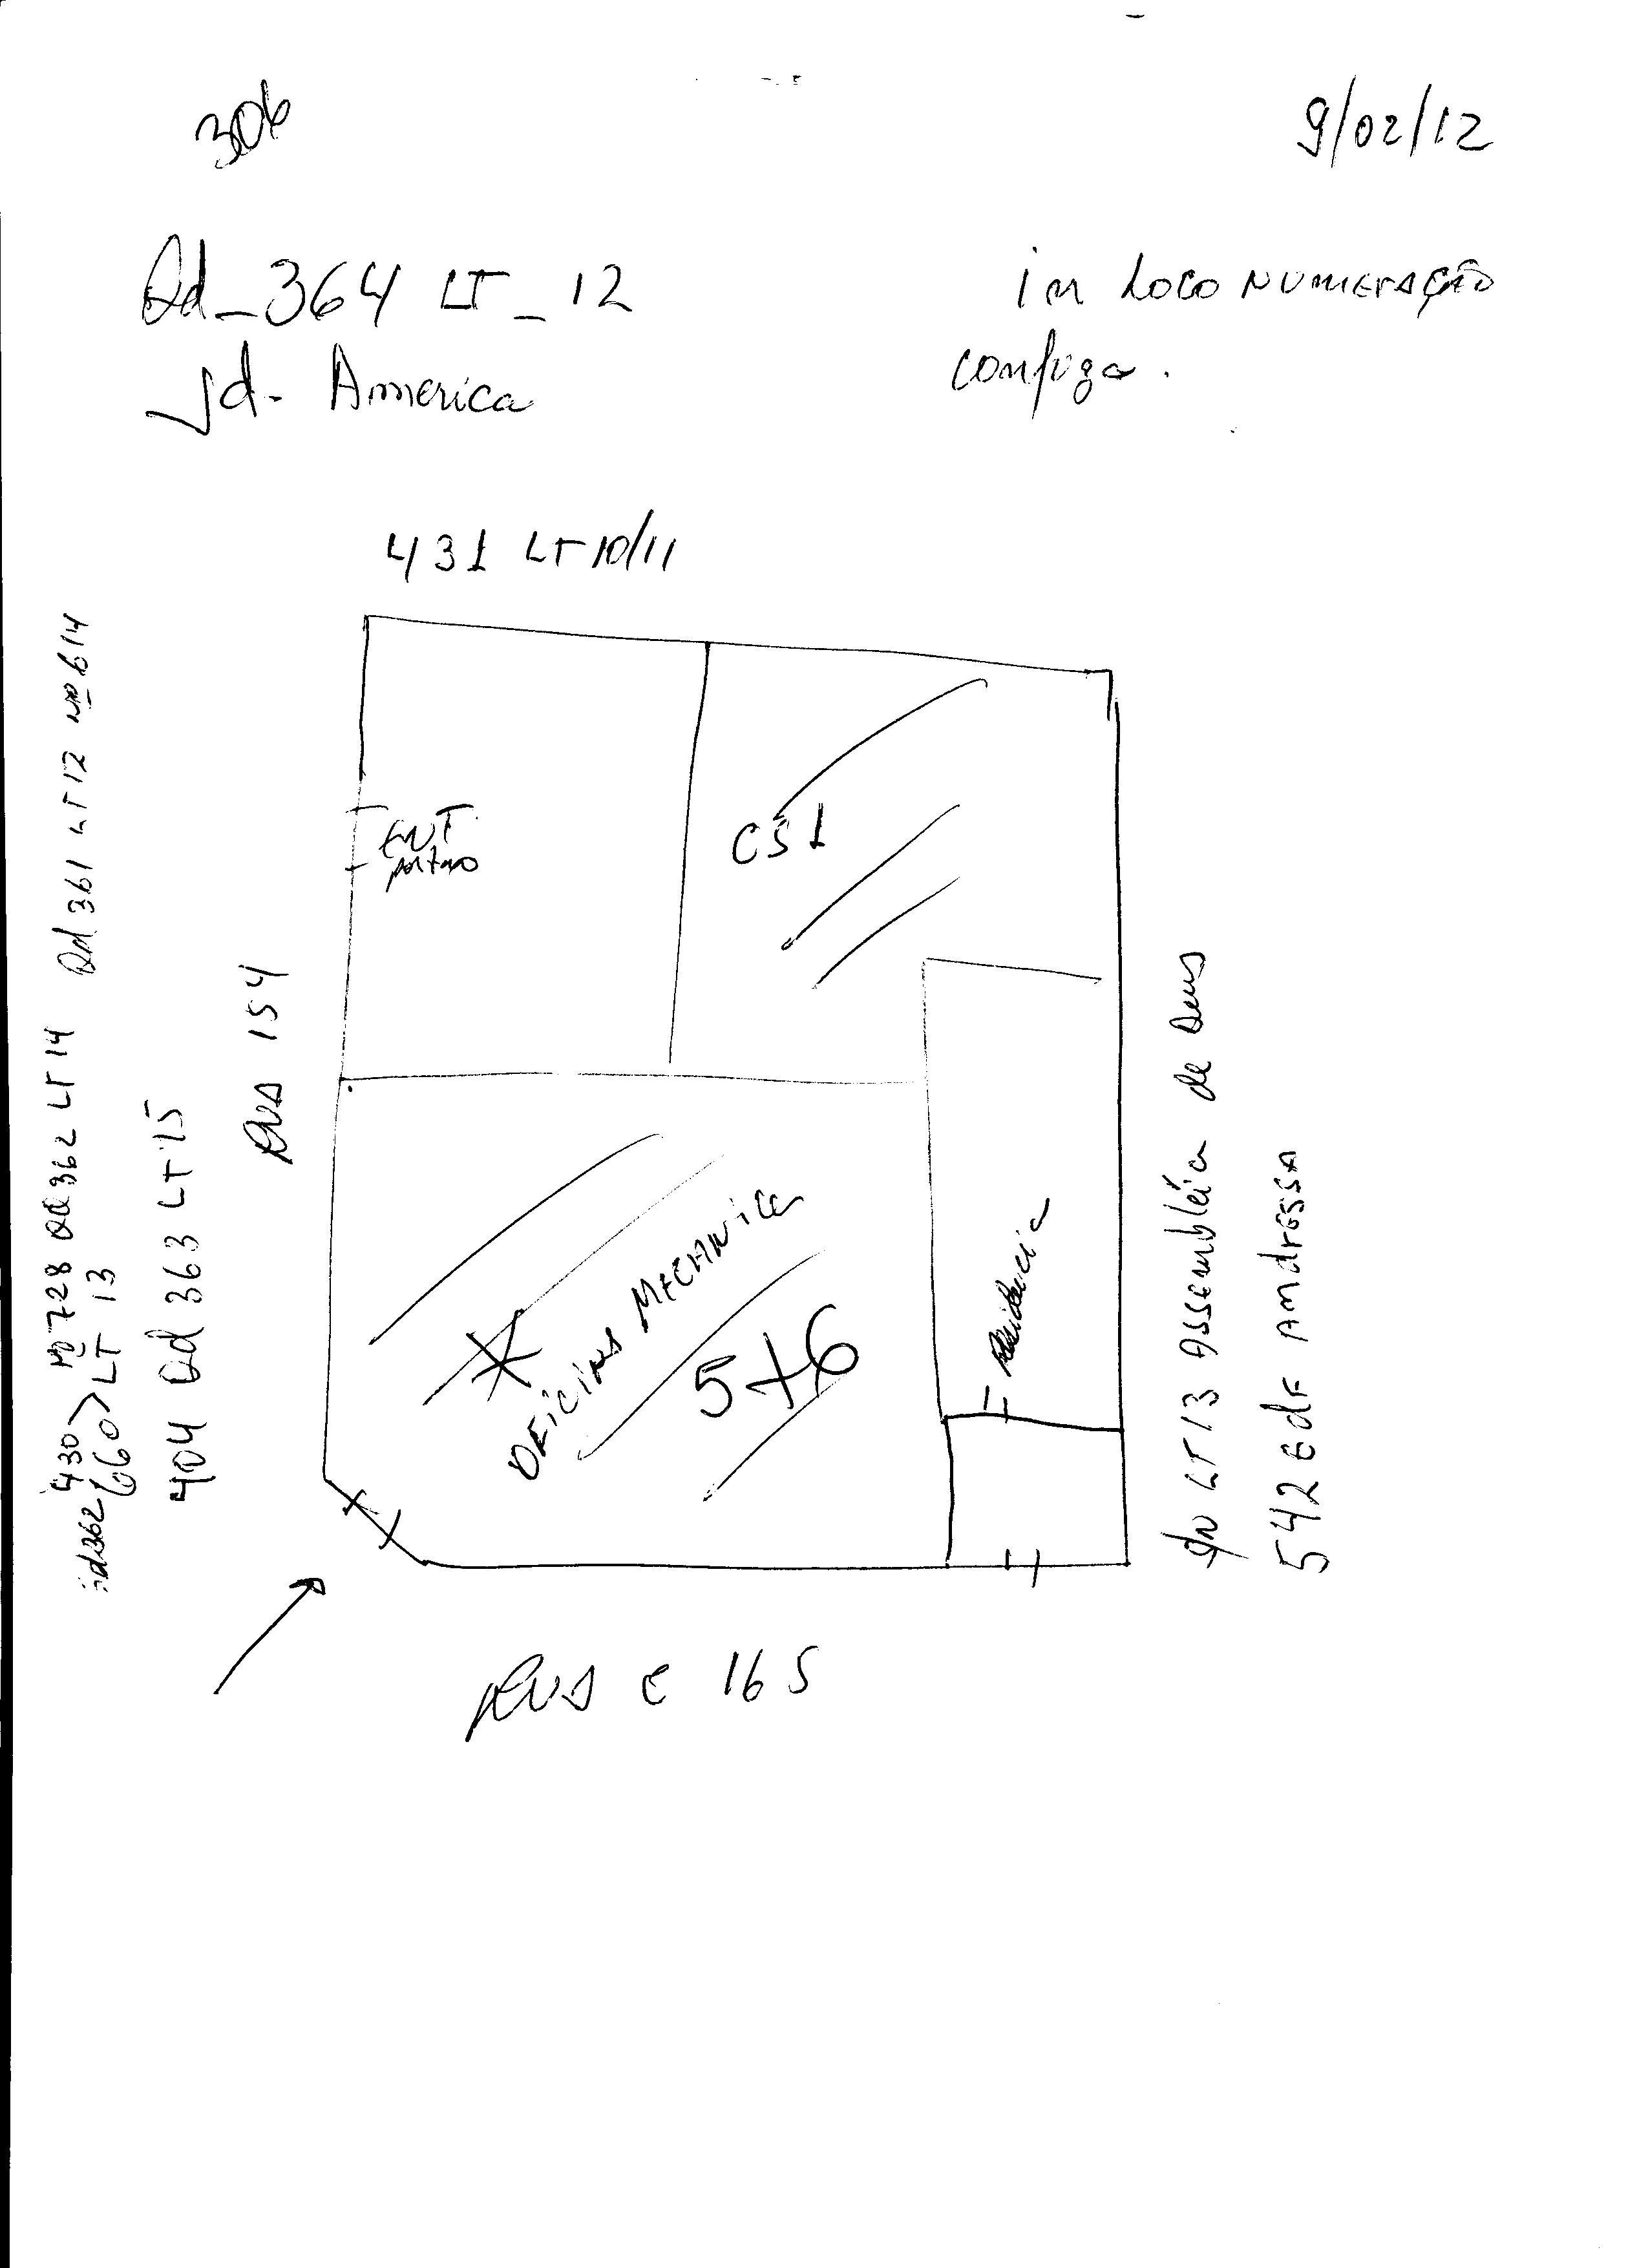 306
9/02/12
Qd_364 LT_12
Jd. America
in Loco NUMERAÇÃO
confuza.
431 LT 10/11
ENT.
portao
CS1
RUA 154
Qd 361 LT 12 Nº 614
430> Nº 728 Qd 362 LT 14
Qd 362 660> LT 13
404 Qd 363 LT 15
OFICINA MECANICA
5+6
Residencia
S/N LT 13 Assembléia de Deus
542 Edf Andressa
RUA C 165